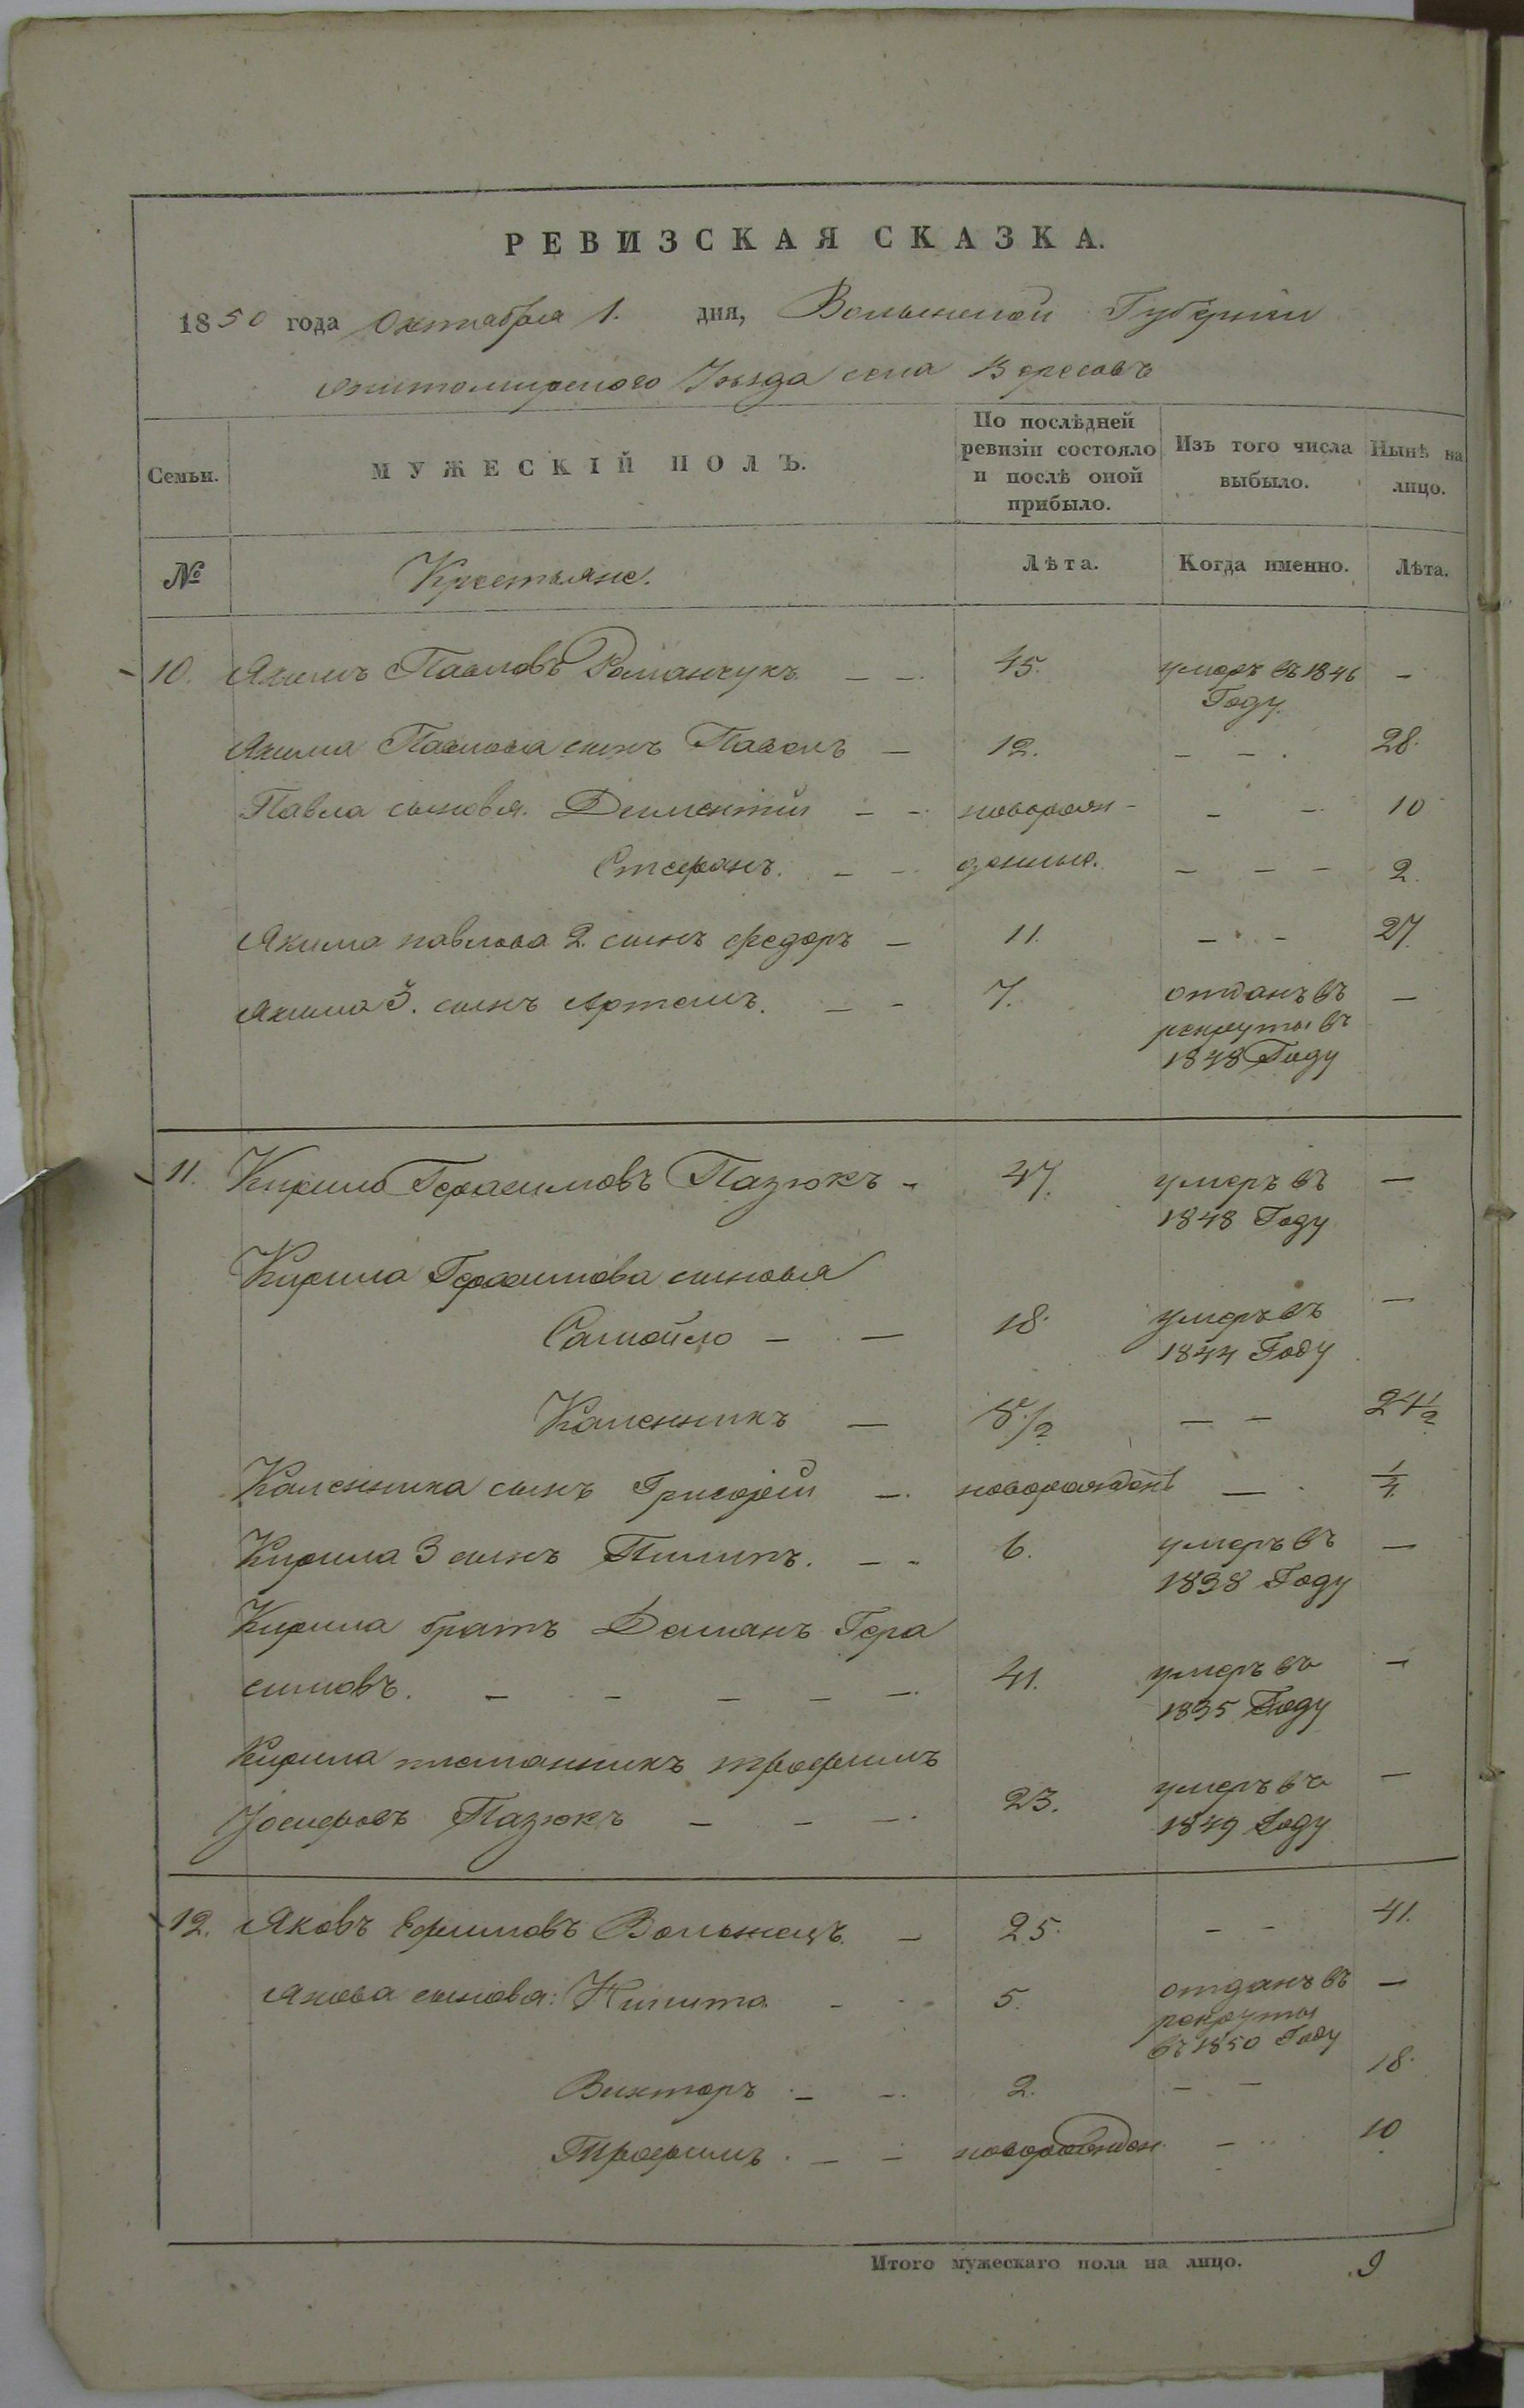 РЕВИЗСКАЯ СКАЗКА.
1850 года Октября 1. дня, Волынской Губернии
Житомирского Уѣзда села Вересовъ
Семьи.
МУЖЕСКІЙ ПОЛЪ.
По послѣдней ревизіи состояло и послѣ оной прибыло.
Изъ того числа выбыло.
Нынѣ на лицо.
№
Крестьяне.
Лѣта.
Когда именно.
Лѣта.
10. Якимъ Павловъ Романчукъ — — 45. умеръ въ 1846 —
Году.
Якима Павлова сынъ Павелъ — 12. — — . 28.
Павла сыновья. Дементий — — новорож- — — 10
Стефанъ. — — денные. — — — 2.
Якима павлова 2. сынъ Федоръ — 11. — — 27.
Якима 3. сынъ Артемъ. — — 7. отданъ въ —
рекруты въ
1848 Году
11. Кирило Герасимовъ Пазюкъ - 47. умеръ въ —
1848 Году
Кирила Герасимова сыновья
Самойло — — 18. умеръ въ —
1844 Году
Каленникъ — 8 1/2 — — 24 1/2
Каленника сынъ Григорий — новорожден — 1/4
Кирила 3 сынъ Пилипъ. — — 6. умеръ въ —
1838 Году
Кирила братъ Демянъ Гера
симовъ. — — — — — 41. умеръ въ —
1835 Году
Кирила племянникъ трофимъ
Іосифовъ Пазюкъ — — — 23. умеръ въ —
1849 Году
12. Яковъ Ефимовъ Волынецъ. — 25. — — 41.
Якова сыновья: Никита — - 5. отданъ въ —
рекруты
въ 1850 Году
Викторъ — — 2. — — 18.
Трофимъ. — — новорожден. — 10
Итого мужескаго пола на лицо. 9